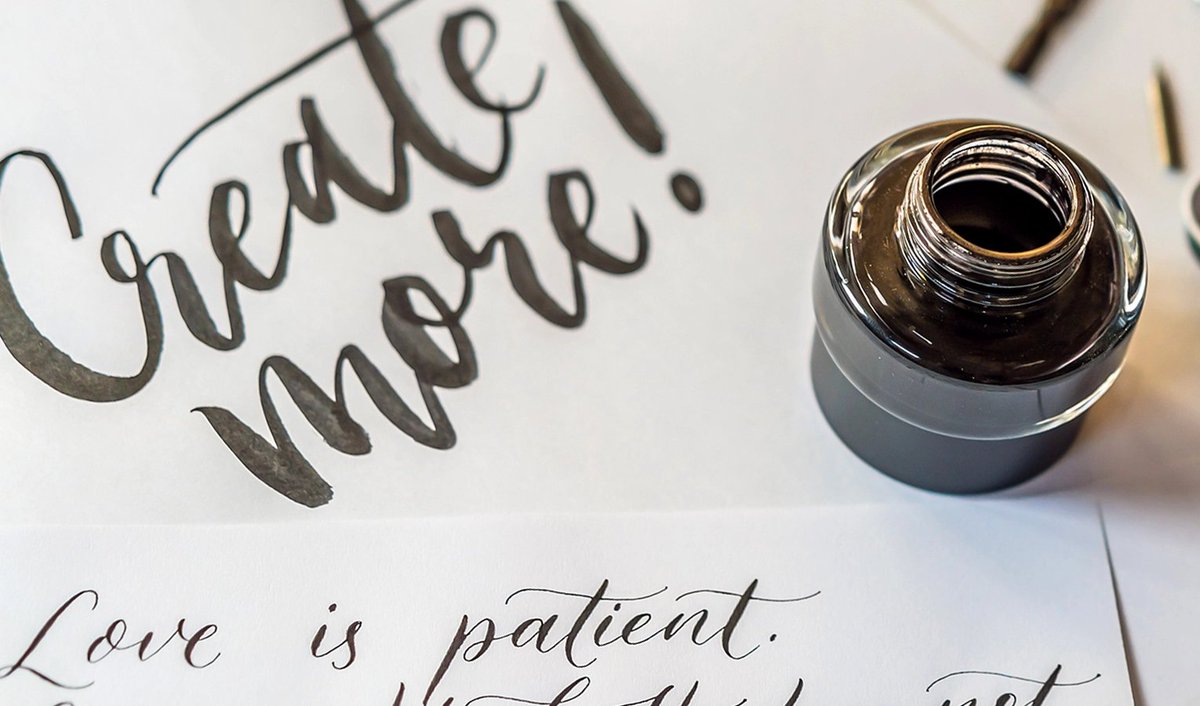 Create
more!
Love is patient.
not